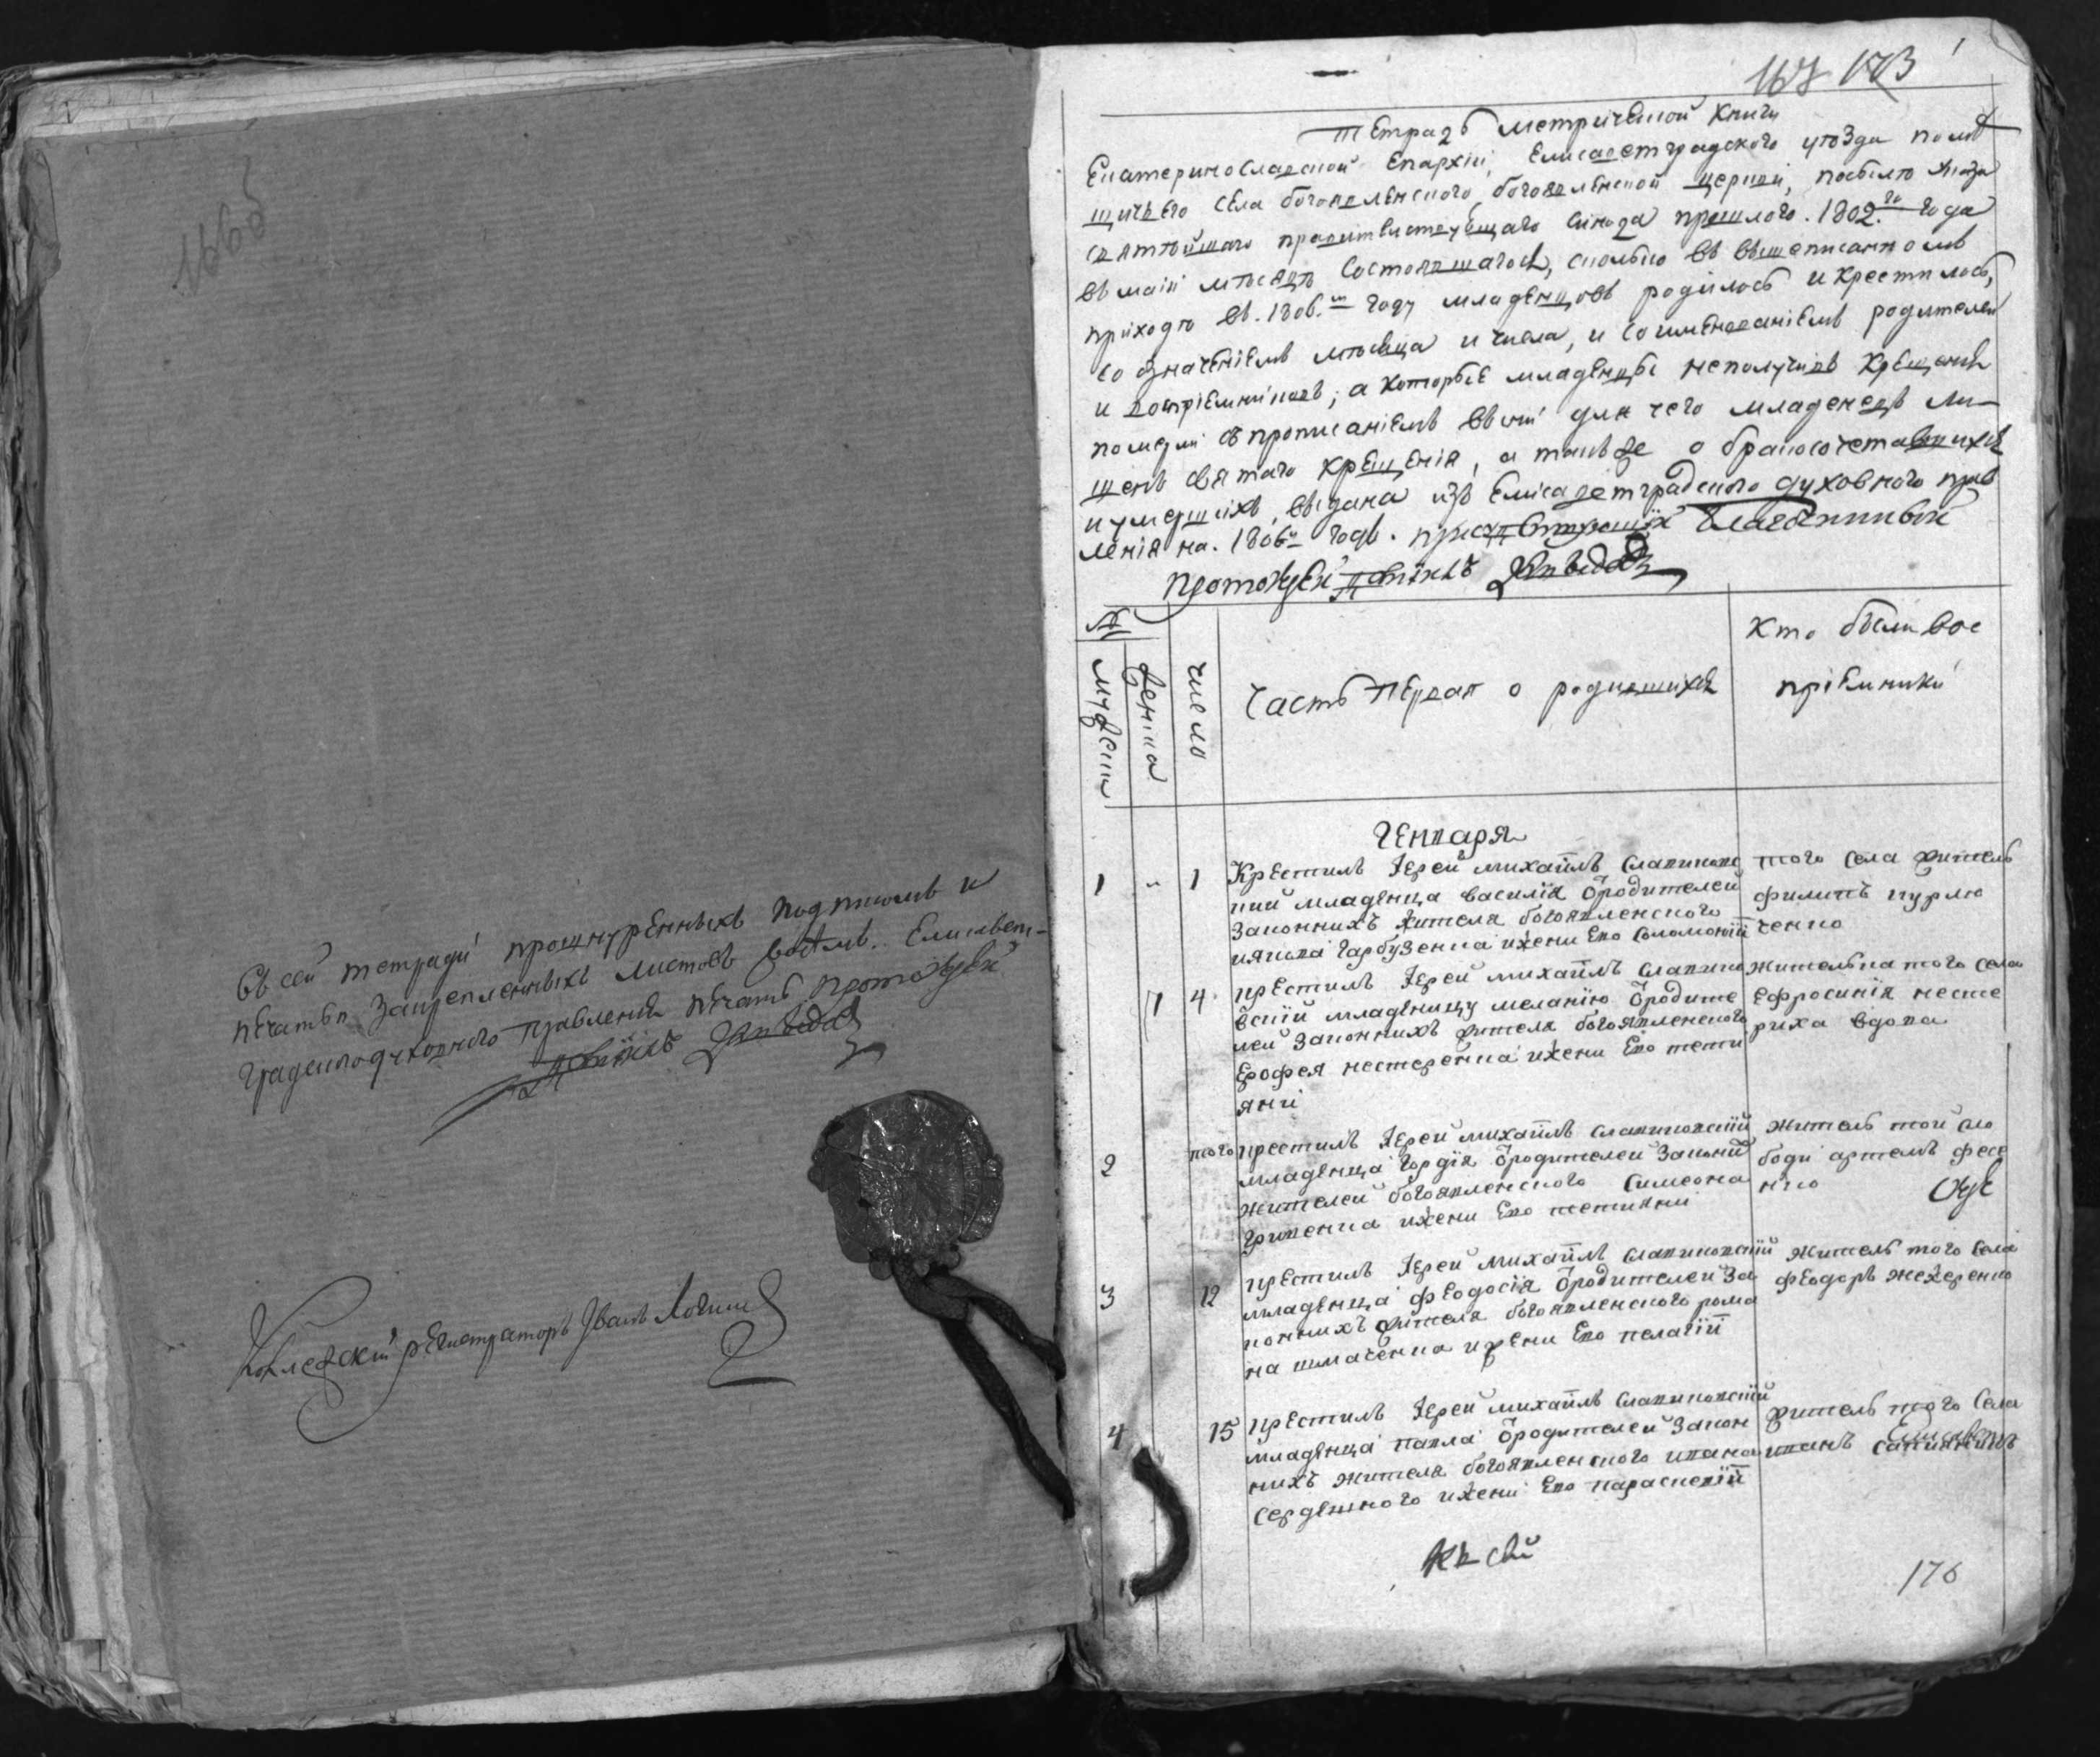 1665
Въ сей тетради прошнуренныхъ подписомъ и
печатью закрепленныхъ листовъ восемь. Елисавет-
градского духовного правления печать протоіерей
Коллежскій регистраторъ Іванъ
167 173 1
Тетрадь метрической книги
Екатеринославской Епархіи, Елисаветградского уѣзда помѣ
щичьего села богоявленского, богоявленской церкви, посылѣ указа
святѣйшаго правительствующаго синода прошлого 1802.го года
въ маіи мѣсяцѣ состоявшагося, сколько въ вышеписанномъ
приходѣ въ. 1806.м году младенцовъ родилось и крестилось,
со означеніемъ мѣсяца и числа, и со именованіемъ родителей
и воспріемниковъ; а которые младенцы неполучивъ крещенія
померли съ прописаніемъ вины для чего младенецъ ли-
шенъ святаго крещенія, а такъже о бракосочетавшихся
и умершихъ, выдана изъ Елисаветградского духовного прав
ленія на. 1806й годъ. присутствующій благочинный
протоіерей
№
мужеска
женска
число
Часть первая о родившихся
Кто были вос
пріемники
Генваря
1 " 1 Крестилъ Іерей михаилъ славинов
ский младенца василія Ѿродителей
законнихъ жителя богоявленского
иякова гарбузенка ижени Его соломоніи
того села житель
филипъ курлю
ченко
1 4 крестилъ Іерей михаилъ славино
вскій младеницу меланію Ѿродите
лей законнихъ жителя богоявленского
Ерофея нестеренка ижени Его тети
яни
жителька того села
Ефросинія несте
риха вдова
2 того крестилъ Іерей михаилъ славиновскій
младенца гордія Ѿродителей законнихъ
жителей богоявленского симеона
гриценка ижени Его тетияни
житель той сло
боди артемъ фесе
нко
3 12 крестилъ Іерей михаилъ славиновскій
младенца феодосія Ѿродителей за
коннихъ жителя богоявленского рома
на шмаченка ижени Его пелагіи
житель того села
феодоръ нехеренко
4 15 крестилъ Іерей михаилъ славиновскій
младенца павла Ѿродителей закон
нихъ жителя богоявленского ивана
сердешного ижени Его параскевіи
житель того села
иванъ
къ сей
176